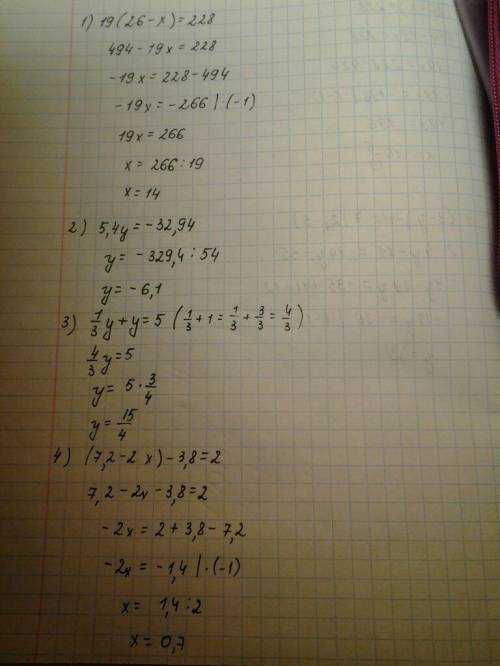 1) 19(26-x)=228
494-19x=228
-19x=228-494
-19x=-266|·(-1)
19x=266
x=266:19
x=14
2) 5,4y=-32,94
y=-329,4:54
y=-6,1
3) 1/3y+y=5 (1/3+1=1/3+3/3=4/3)
4/3y=5
y=5·3/4
y=15/4
4) (7,2-2x)-3,8=2
7,2-2x-3,8=2
-2x=2+3,8-7,2
-2x=-1,4|·(-1)
x=1,4:2
x=0,7